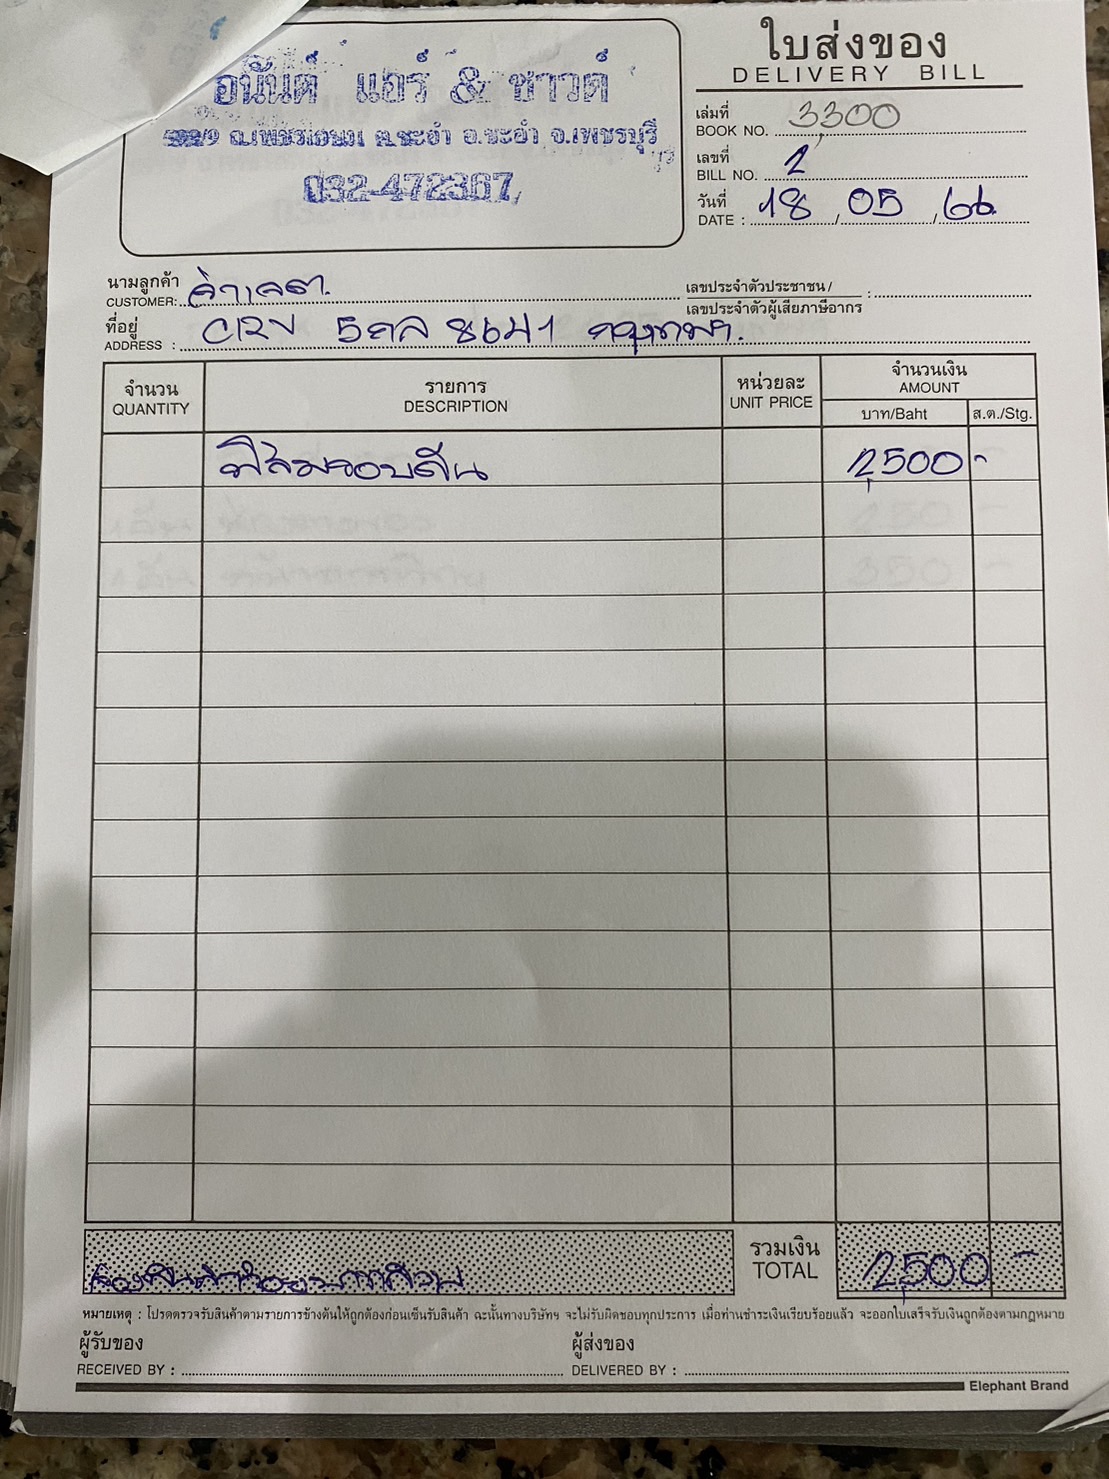 ใบส่งของ
DELIVERY BILL
อนันต์ แอร์ & ซาวด์
ต.ชะอำ อ.ชะอำ จ.เพชรบุรี
032-472367
เล่มที่
BOOK NO. 3300
เลขที่
BILL NO. 1
วันที่
DATE : 18 / 05 / 66
นามลูกค้า
CUSTOMER:
เลขประจำตัวประชาชน /
เลขประจำตัวผู้เสียภาษีอากร :
ที่อยู่
ADDRESS : CRV 5กล 8641 กรุงเทพฯ
จำนวน
QUANTITY
รายการ
DESCRIPTION
หน่วยละ
UNIT PRICE
จำนวนเงิน
AMOUNT
บาท/Baht
ส.ต./Stg.
ฟิล์มรอบคัน 12,500 -
สองพันห้าร้อยบาทถ้วน
รวมเงิน
TOTAL
12,500 -
หมายเหตุ : โปรดตรวจรับสินค้าตามรายการข้างต้นให้ถูกต้องก่อนเซ็นรับสินค้า ฉะนั้นทางบริษัทฯ จะไม่รับผิดชอบทุกประการ เมื่อท่านชำระเงินเรียบร้อยแล้ว จะออกใบเสร็จรับเงินถูกต้องตามกฎหมาย
ผู้รับของ
RECEIVED BY :
ผู้ส่งของ
DELIVERED BY :
Elephant Brand